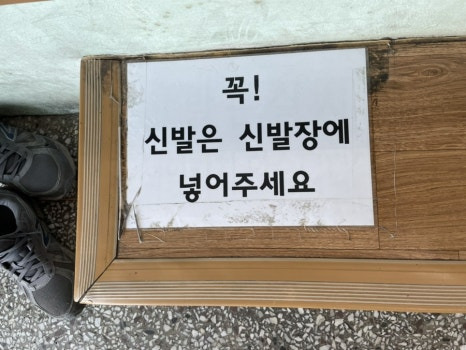 꼭!
신발은 신발장에
넣어주세요